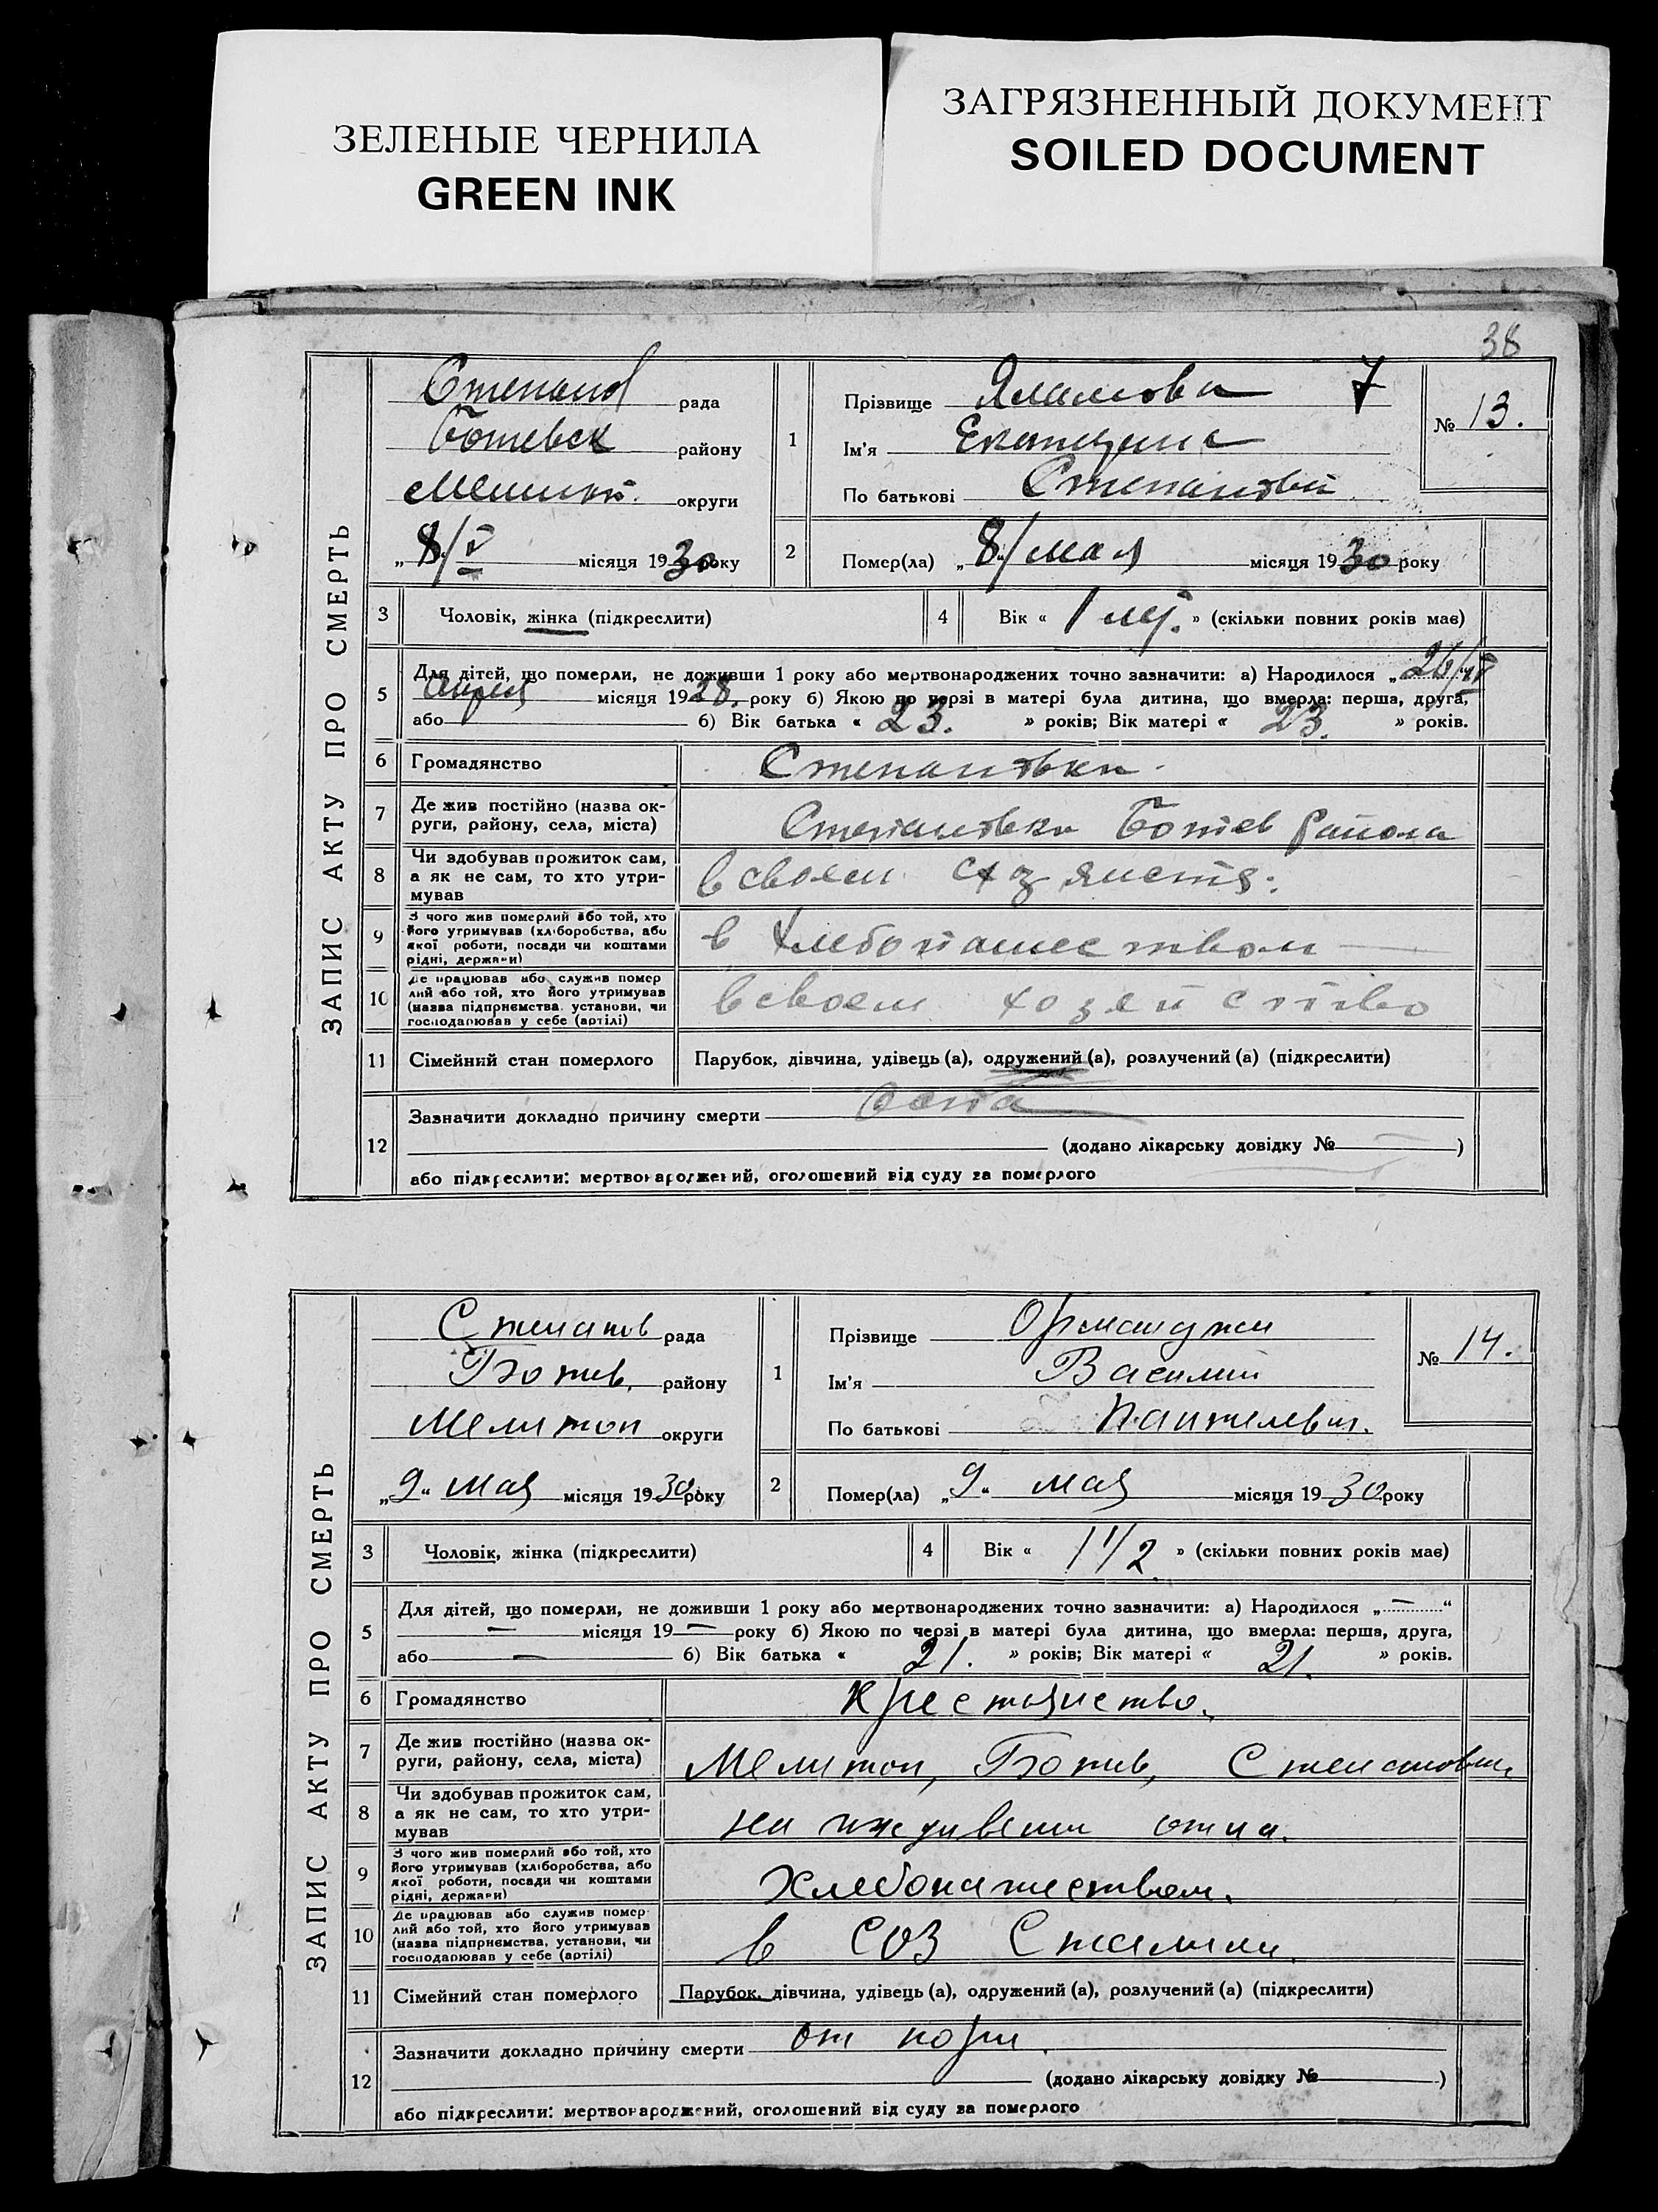 ЗЕЛЕНЫЕ ЧЕРНИЛА
GREEN INK
ЗАГРЯЗНЕННЫЙ ДОКУМЕНТ
SOILED DOCUMENT
38
ЗАПИС АКТУ ПРО СМЕРТЬ
Степанов рада
Ботевск району
округи
„8/V місяця 1930 року
1
Прізвище 7
Ім'я Екатерина
По батькові
№ 13.
2
Помер(ла) „8/ мая місяця 1930 року
3 Чоловік, жінка (підкреслити)
4 Вік « 1 » (скільки повних років має)
5 Для дітей, що померли, не доживши 1 року або мертвонароджених точно зазначити: а) Народилося „26/
Апреля місяця 1928. року б) Якою по черзі в матері була дитина, що вмерла: перша, друга,
або б) Вік батька « 23. » років; Вік матері « 23. » років.
6 Громадянство Степановка
7 Де жив постійно (назва округи, району, села, міста) Степановка Ботев района
8 Чи здобував прожиток сам, а як не сам, то хто утримував в своем
9 З чого жив померлий або той, хто його утримував (хліборобства, або якої роботи, посади чи коштами рідні, держави) в хлебопашеством
10 Де працював або служив померлий або той, хто його утримував (назва підприємства, установи, чи господарював у себе (артілі) в своем хозейство
11 Сімейний стан померлого Парубок, дівчина, удівець (а), одружений (а), розлучений (а) (підкреслити)
12 Зазначити докладно причину смерти Оспа
(додано лікарську довідку № —)
або підкреслити: мертвонароджений, оголошений від суду за померлого
ЗАПИС АКТУ ПРО СМЕРТЬ
Степанов рада
Ботив. району
Мелитоп округи
„9“ мая місяця 1930 року
1
Прізвище Орманджи
Ім'я Василий
По батькові Пантелевич.
№ 14.
2
Помер(ла) „9“ мая місяця 1930 року
3 Чоловік, жінка (підкреслити)
4 Вік « 1 1/2 » (скільки повних років має)
5 Для дітей, що померли, не доживши 1 року або мертвонароджених точно зазначити: а) Народилося „—“
— місяця 19— року б) Якою по черзі в матері була дитина, що вмерла: перша, друга,
або — б) Вік батька « 21. » років; Вік матері « 21. » років.
6 Громадянство Крестянство.
7 Де жив постійно (назва округи, району, села, міста) Мелитоп, Ботив, Степановки
8 Чи здобував прожиток сам, а як не сам, то хто утримував на иждивении отца.
9 З чого жив померлий або той, хто його утримував (хліборобства, або якої роботи, посади чи коштами рідні, держави) Хлебопашеством.
10 Де працював або служив померлий або той, хто його утримував (назва підприємства, установи, чи господарював у себе (артілі) в СОЗ Сталина.
11 Сімейний стан померлого Парубок, дівчина, удівець (а), одружений (а), розлучений (а) (підкреслити)
12 Зазначити докладно причину смерти от кори.
(додано лікарську довідку №)
або підкреслити: мертвонароджений, оголошений від суду за померлого